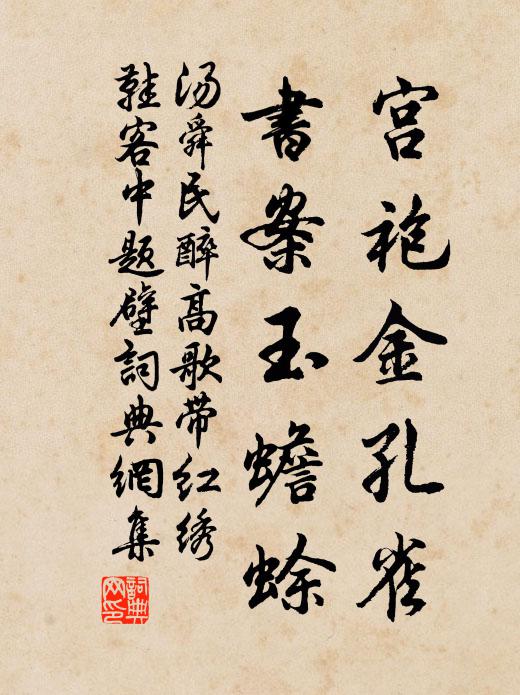 宫袍金孔雀
書案玉蟾蜍
汤舜民醉高歌带红绣
鞋客中题壁詞典網集
詞典網印